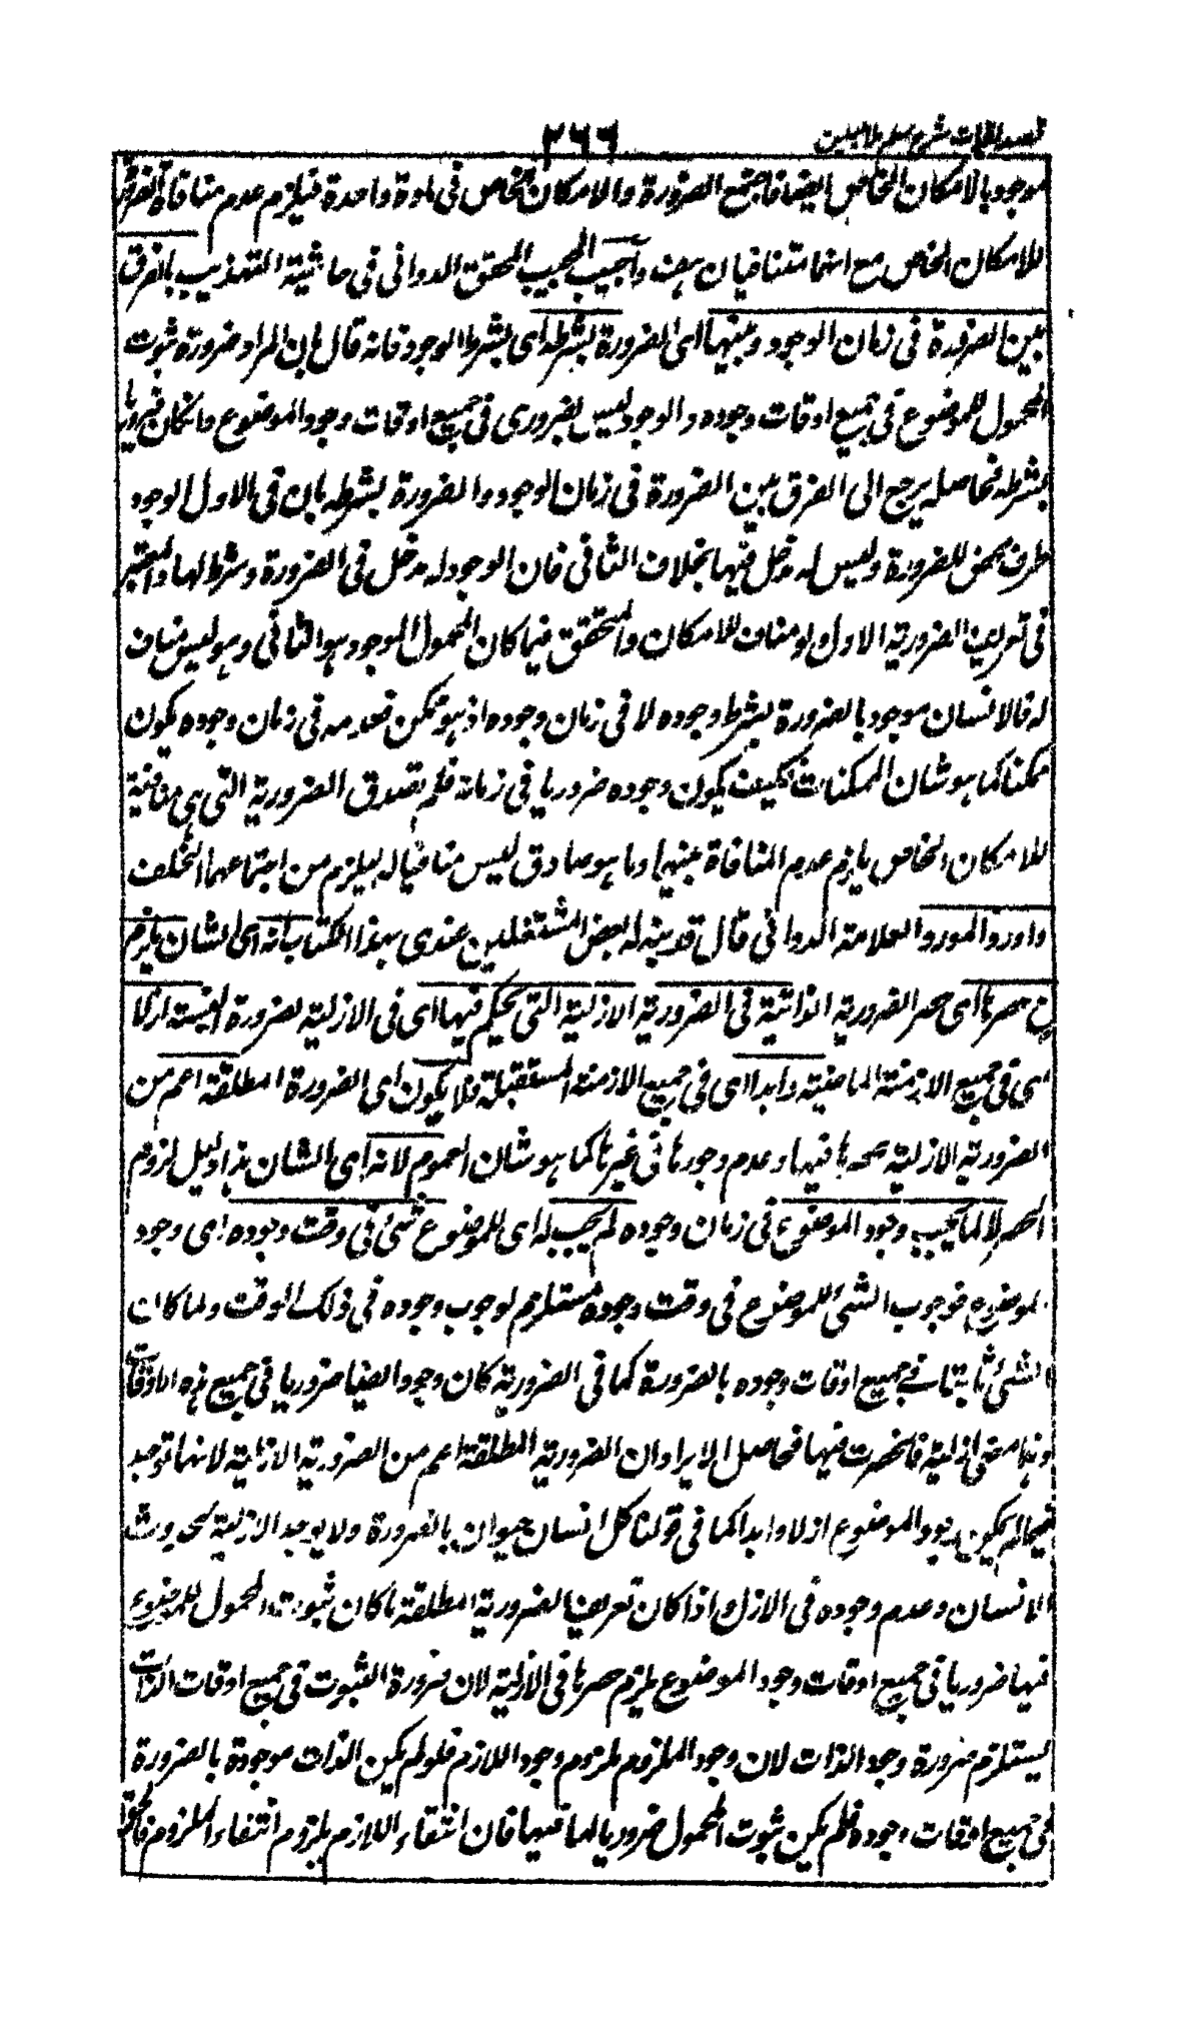 تصديقات شرح سلم ملا مبين
٢٦٦
موجود بالامكان الخاص ايضا فاجتمع الضرورة والامكان الخاص فى مادة واحدة فيلزم عدم منافاة الضرورة
للامكان الخاص مع انهما متنافيان بهف واجيب المجيب المحقق الدوانى فى حاشية التهذيب بالفرق
بين الضرورة فى زمان الوجود وبينها اى الضرورة بشرطه اى بشرط الوجود فانه قال بان المراد ضرورة ثبوت
المحمول للموضوع فى جميع اوقات وجوده والوجود ليس بضرورى فى جميع اوقات وجود الموضوع وانكان ضروريا
بشرطه فحاصله يرجع الى الفرق بين الضرورة فى زمان الوجود والضرورة بشرطه بان فى الاول الوجود
ظرف محض للضرورة وليس له دخل فيها بخلاف الثانى فان الوجود له دخل فى الضرورة وشرط لها والمعتبر
فى تعريف الضرورية الاول وهو مناف للامكان والمتحقق فيما كان المحمول الوجود هو الثانى وهو ليس مناف
له فالانسان موجود بالضرورة بشرط وجوده لا فى زمان وجوده اذ هو ممكن فعدمه فى زمان وجوده يكون
ممكنا كما هو شان الممكنات فكيف يكون وجوده ضروريا فى زمانه فلم يصدق الضرورية التى هى منافية
للامكان الخاص يلزم عدم المنافاة بينهما وما هو صادق ليس منافيا له ليلزم من اجتماعهما الخلف
واورد المورد العلامة الدوانى قال قد نبه له بعض المشتغلين عندى بهذا الكتاب بانه اى الشان يلزم
ح حصرها اى حصر الضرورية الذاتية فى الضرورية الازلية التى يحكم فيها اى فى الازلية لضرورة النسبة ازلا
اى فى جميع الازمنة الماضية وابدا اى فى جميع الازمنة المستقبلة فلا يكون اى الضرورة المطلقة اعم من
الضرورية الازلية بحصرها فيها وعدم وجودها فى غيرها كما هو شان العموم لانه اى الشان هذا دليل لزوم
الحصر لا لما يجب وجود الموضوع فى زمان وجوده لم يجب له اى للموضوع شئ فى وقت وجوده اى وجود
الموضوع فوجوب الشئ للموضوع فى وقت وجوده مستلزم لوجوب وجوده فى ذلك الوقت ولما كان
الشئ ثابتا فى جميع اوقات وجوده بالضرورة كما فى الضرورية كان وجود ايضا ضروريا فى جميع هذه الاوقات
وهذا معنى ازلية فانحصرت فيها فحاصل الايراد ان الضرورية المطلقة اعم من الضرورية الازلية لانها توجد
فيما لم يكن وجود الموضوع ازلا وابدا كما فى قولنا كل انسان حيوان بالضرورة ولا يوجد الازلية لحدوث
الانسان وعدم وجوده فى الازل واذا كان تعريف الضرورية المطلقة ما كان ثبوت المحمول للموضوع
فيها ضروريا فى جميع اوقات وجود الموضوع يلزم حصرها فى الازلية لان ضرورة الثبوت فى جميع اوقات الذات
يستلزم ضرورة وجود الذات لان وجود الملزوم ملزوم وجود اللازم فلو لم يكن الذات موجودة بالضرورة
فى جميع اوقات وجوده فلم يكن ثبوت المحمول ضروريا لها فيها فان انتفاء اللازم يلزوم انتفاء الملزوم